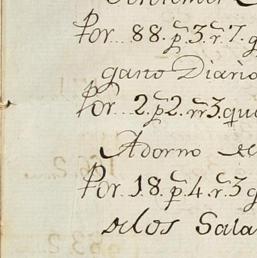 Por 88. p. 3. r. 7. q
gasto Diario
Por 2. p. 2. rr 3. que
Adorno de
Por 18. p. 4. r. 3 q
delos Sala